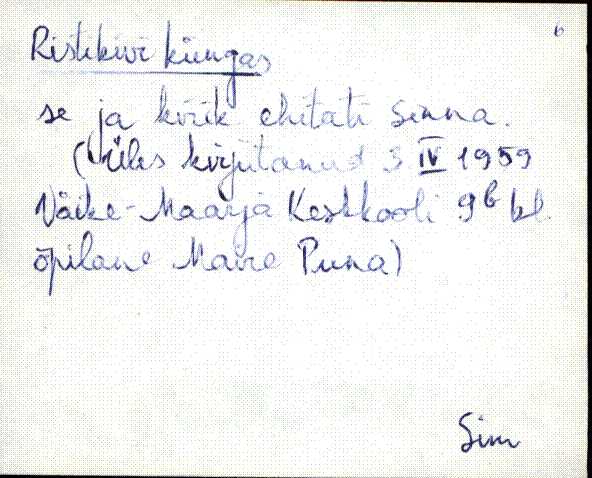 6
Ristikivi küngas
se ja kirik ehitati sinna.
(Üles kirjutanud 3 IV 1959
Väike-Maarja Keskkooli 9b kl.
õpilane Maire Puna)
Sim